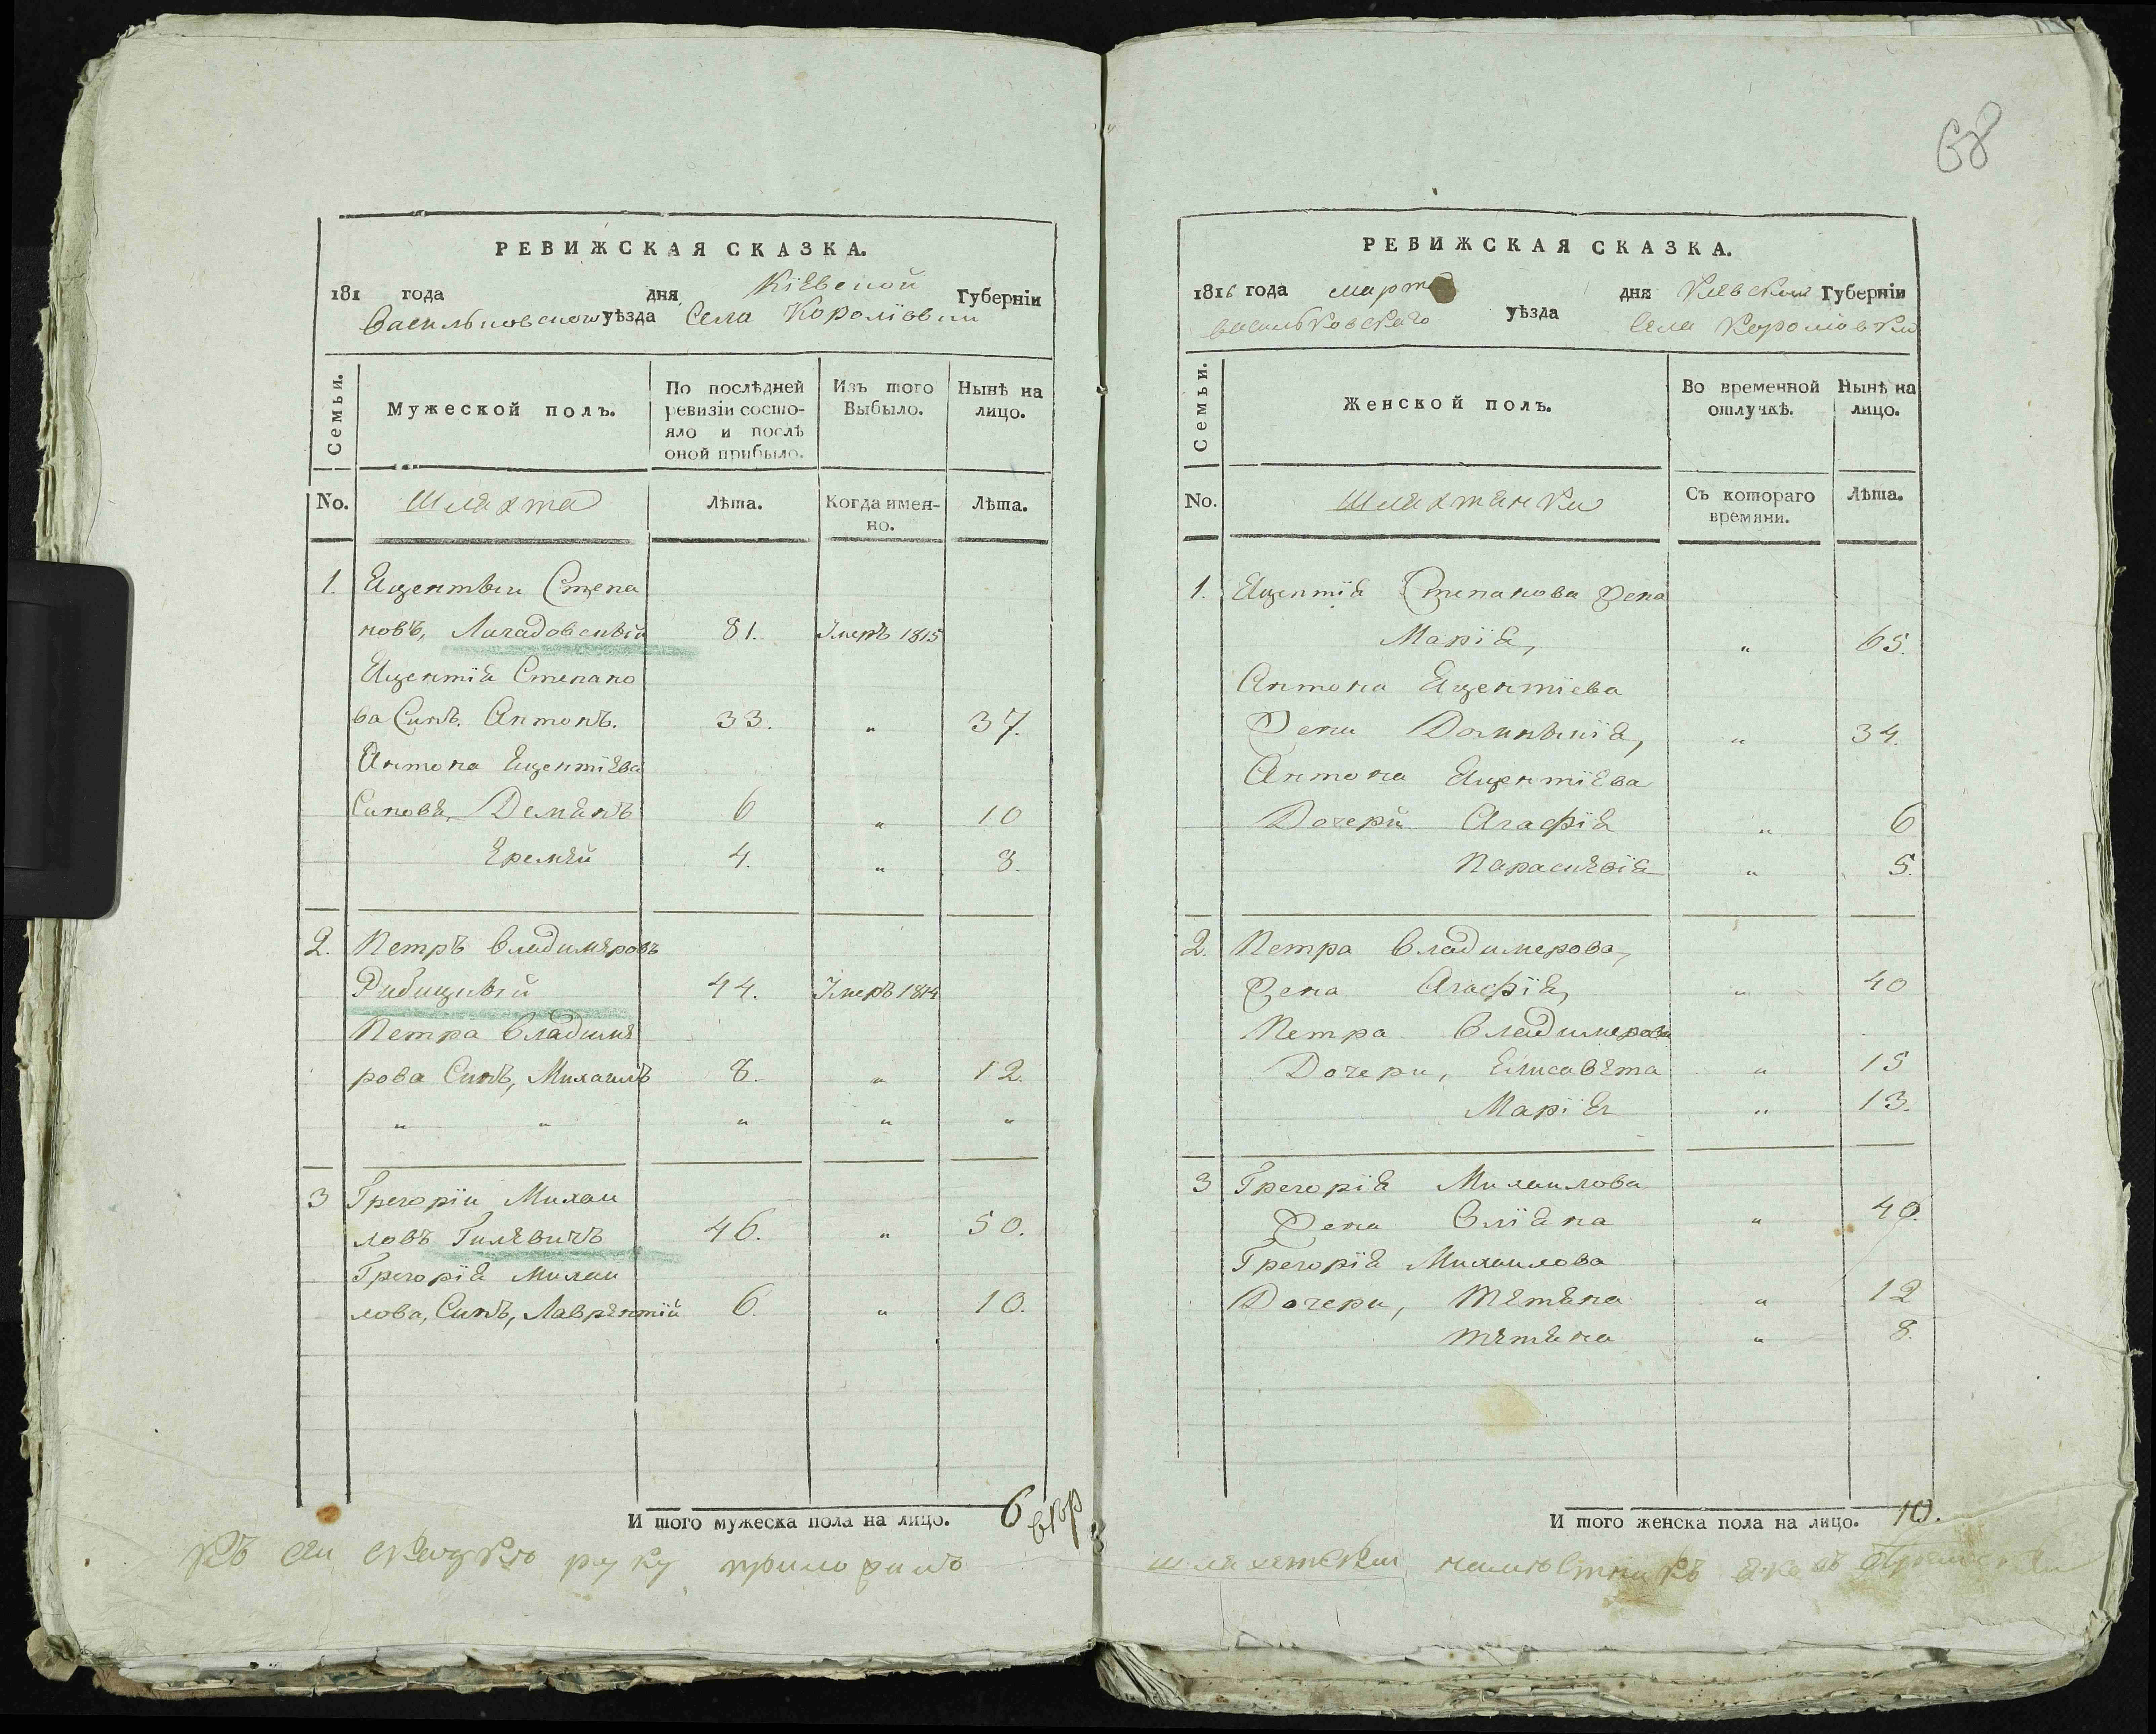 68
РЕВИЖСКАЯ СКАЗКА.
181 года дня Кіевской Губерніи
Васильковского уѣзда Села Королівки
Семьи.
Мужеской полъ.
По послѣдней ревизіи состояло и послѣ оной прибыло.
Изъ того Выбыло.
Нынѣ на лицо.
No. Шляхта Лѣта. Когда именно. Лѣта.
1. Яцентый Степа
новъ, 81. Умеръ 1815
Яцентія Степано
ва Синъ. Антонъ. 33. „ 37.
Антона Яцентіева
Синова, Демянъ 6 „ 10
Еремѣй 4. „ 8.
2. Петръ Владимѣровъ
44. Умеръ 1814
Петра Владимѣ
рова Синъ, Михаилъ 8. „ 12.
„ „ „ „ „
3 Грегорїи Михаи
ловъ Гилевичъ 46. „ 50.
Грегорїя Михаи
лова, Синъ, Лаврентїй 6. „ 10.
И того мужеска пола на лицо. 6
къ сей скаzкѣ руку приложилъ
РЕВИЖСКАЯ СКАЗКА.
1816 года марта дня Киевской Губерніи
васильковскаго уѣзда Села Королювки
Семьи.
Женской полъ.
Во временной отлучкѣ.
Нынѣ на лицо.
No. Шляхтянки Съ котораго времяни. Лѣта.
1. Яцентїя Степанова Жена
Марїя, „ 65.
Антона Яцентїева
Жена „ 34.
Антона Яцентїева
Дочери Агафїя „ 6
Параскевїя „ 5.
2. Петра Владимерова,
Жена Агафїя, „ 40
Петра Владимерова
Дочери, Елисавета „ 15
Марїя „ 13.
3 Грегорїя Михаилова
Жена Улїяна „ 40.
Грегорїя Михаилова
Дочери, Тетяна „ 12
Тетяна „ 8.
И того женска пола на лицо. 10.
шляхетски намѣстникъ